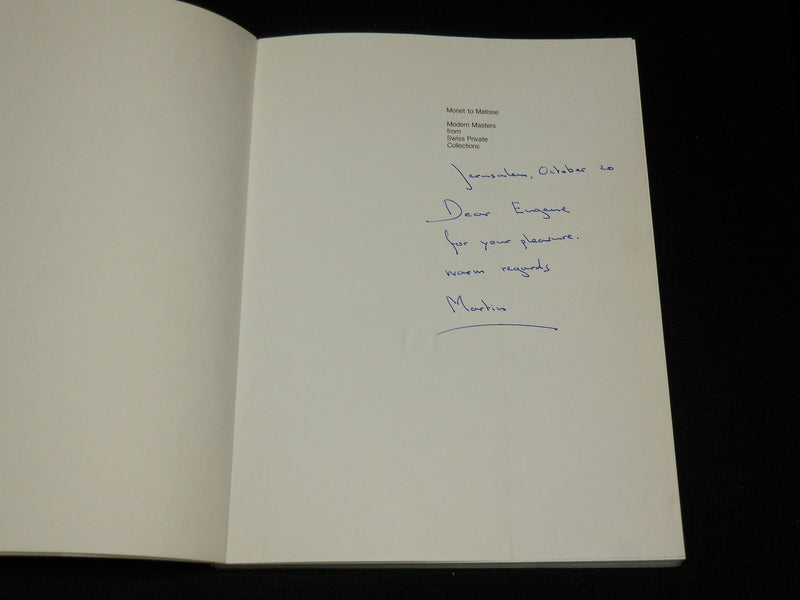 Monet to Matisse
Modern Masters
from
Swiss Private
Collections
Jerusalem, October 20
Dear Eugene
for your pleasure.
warm regards
Martin